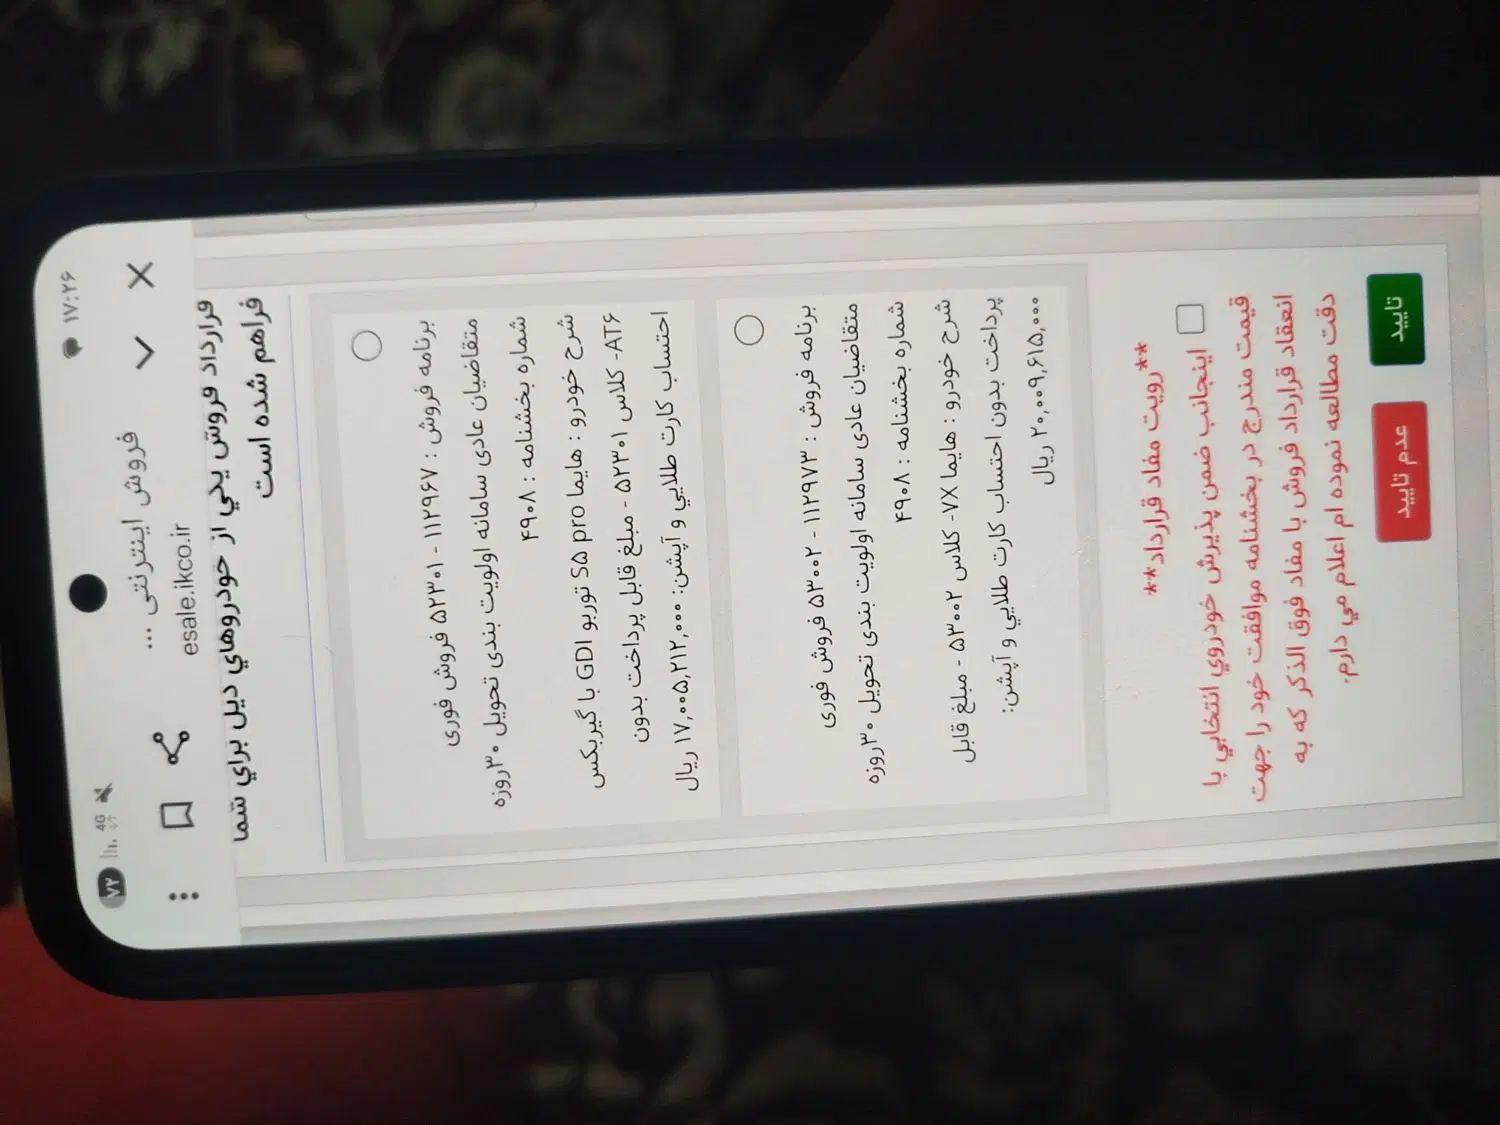 ۱۷:۲۶
4G
۷۲
فروش اینترنتی ...
esale.ikco.ir
قرارداد فروش يكي از خودروهاي ذيل براي شما
فراهم شده است
برنامه فروش : ۱۱۲۹۶۷ - ۵۲۳۰۱ فروش فوری
متقاضیان عادی سامانه اولویت بندی تحویل ۳۰روزه
شماره بخشنامه : ۴۹۰۸
شرح خودرو : هایما S۵ pro توربو GDI با گیربکس
AT۶- کلاس ۵۲۳۰۱ - مبلغ قابل پرداخت بدون
احتساب کارت طلايي و آپشن: ۱۷,۰۰۵,۲۱۲,۰۰۰ ریال
برنامه فروش : ۱۱۲۹۷۳ - ۵۳۰۰۲ فروش فوری
متقاضیان عادی سامانه اولویت بندی تحویل ۳۰روزه
شماره بخشنامه : ۴۹۰۸
شرح خودرو : هایما ۷X- کلاس ۵۳۰۰۲ - مبلغ قابل
پرداخت بدون احتساب کارت طلايي و آپشن:
۲۰,۰۰۹,۶۱۵,۰۰۰ ریال
**رویت مفاد قرارداد**
اینجانب ضمن پذیرش خودروي انتخابي با
قیمت مندرج در بخشنامه موافقت خود را جهت
انعقاد قرارداد فروش با مفاد فوق الذکر که به
دقت مطالعه نموده ام اعلام مي دارم.
تایید
عدم تایید